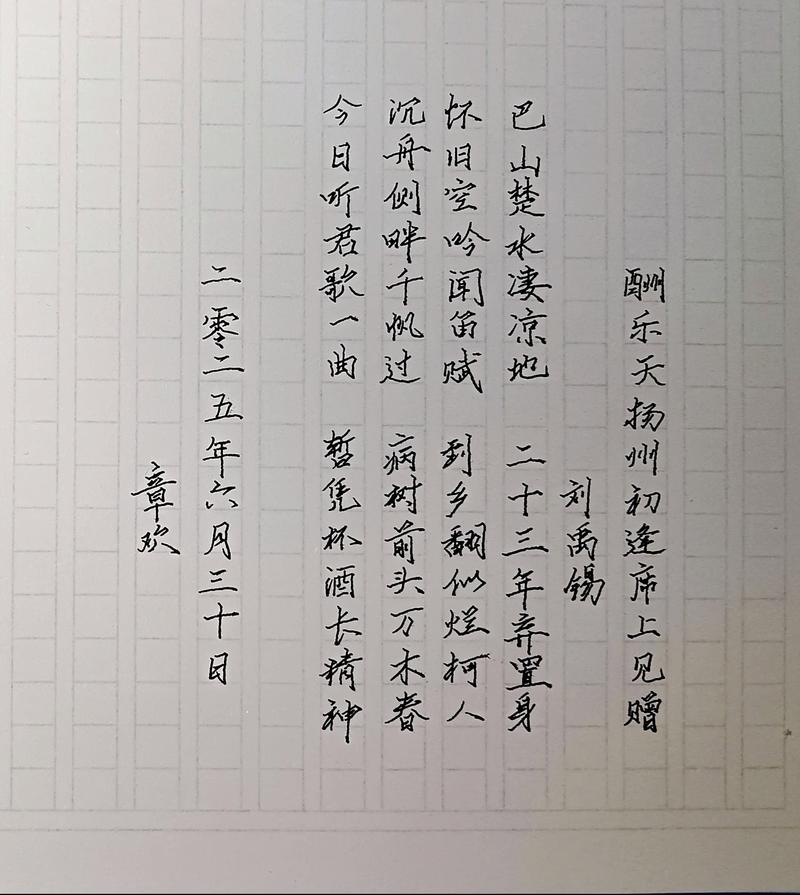 酬乐天扬州初逢席上见赠
刘禹锡
巴山楚水凄凉地 二十三年弃置身
怀旧空吟闻笛赋 到乡翻似烂柯人
沉舟侧畔千帆过 病树前头万木春
今日听君歌一曲 暂凭杯酒长精神
二零二五年六月三十日
章欢